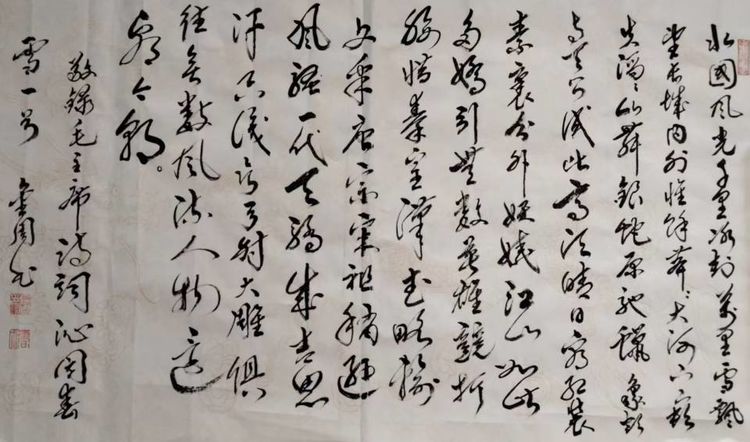 北國风光千里冰封萬里雪飄
望长城内外惟馀莽〻大河上下顿
失滔〻山舞銀蛇原驰蠟象欲
与天公试比高须晴日看红装
素裹分外妖娆江山如此
多嬌引無數英雄競折
腰惜秦皇漢武略输
文采唐宗宋祖稍逊
风骚一代天骄成吉思
汗只识弯弓射大雕俱
往矣数风流人物还
看今朝。
敬録毛主席诗詞沁园春
雪一首